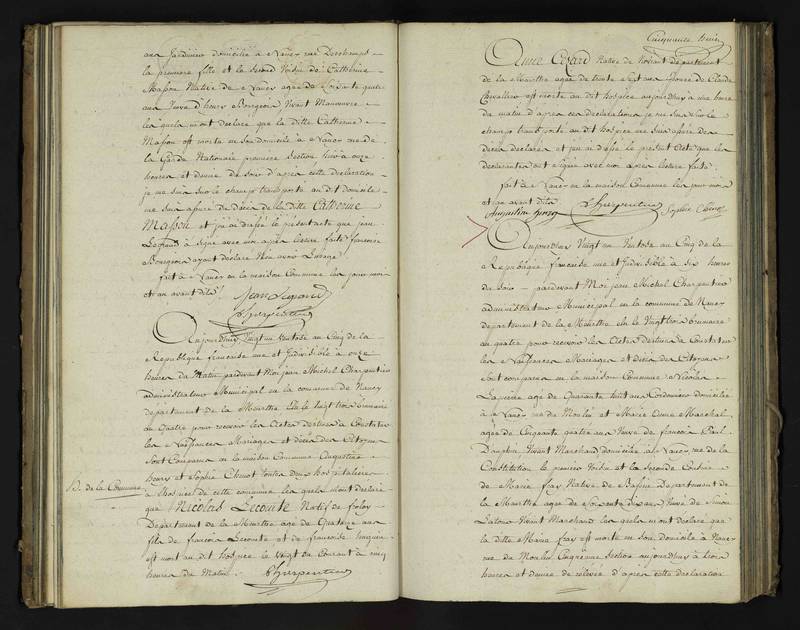 ans jardinier domicilié à Nancy rue
la premiere fille et la second voisin de Catherine
Masson Native de Nancy agée de
ans Bourgeois vivant Manœuvre
lesquels m'ont declaré que la ditte Catherine
Masson est morte en son domicile à Nancy rue de
la Garde Nationale premiere Section hier à onze
heures et demie du soir d'après cette declaration
je me suis sur le champ transporté au dit domicile
me suis assuré du décès de la ditte Catherine
Masson et j'ai dressé le présent acte que jean
Legrand à signé avec moi après lecture faite françoise
Bourgeois ayant declaré n'en avoir l'usage
fait à Nancy en la maison Commune les jour mois
et an avant dits
Jean Legrand
Charpentier
Aujourdhuy Vingt un Ventose an Cinq de la
République française une et Indivisible à onze
heures du Matin pardevant Moi jean Michel Charpentier
administrateur Municipal en la commune de Nancy
département de la Meurthe élu le vingt trois brumaire
an Quatre pour recevoir les Actes destinés à Constater
les Naissances Mariages et décès des Citoyens
sont Comparus en la maison Commune Augustine
henry et Sophie Chenot toutes deux hospitalieres
H. de la Commune
à l'hospice de cette commune lesquels m'ont declaré
que Nicolas Lecomte Natif de
Département de la Meurthe agé de Quatorze ans
fils de francois Lecomte et de françoise
est mort au dit hospice le vingt du Courant à cinq
heures du Matin.
Charpentier
Cinquante huit
Anne Cesard Native de Nomeny département
de la Meurthe agée de trente sept ans épouse de Claude
Chevallier est morte au dit hospice aujourdhuy à une heure
du matin d'après ces declarations je me suis sur le
champ transporté au dit hospice me suis assuré des
décès declarés et j'en ai dressé le présent Acte que les
declarantes ont signé avec moi après lecture faite.
fait à Nancy en la maison Commune les jour mois
et an avant dits
Augustine henry Charpentier Sophie Chenot
Aujourdhuy Vingt un Ventose an Cinq de la
République française une et Indivisible à six heures
du soir pardevant Moi jean Michel Charpentier
administrateur Municipal en la commune de Nancy
département de la Meurthe élu le Vingt trois brumaire
an quatre pour recevoir les Actes destinés à Constater
les Naissances Mariages et décès des Citoyens
sont comparus en la maison Commune Nicolas
agé de Quarante huit ans Cordonnier domicilié
à Nancy rue du Moulin et Marie Anne Marchal
agée de Cinquante quatre ans Veuve de francois Paul
Dauphin vivant Marchand domiciliée à Nancy rue de la
Constitution le premier Voisin et la seconde Cousine
de Marie fray Native de Département de
la Meurthe agée de soixante dix ans Veuve de Simon
Lalour vivant Marchand lesquels m'ont declaré que
la ditte Marie fray est morte en son domicile à Nancy
rue du Moulin Cinquieme Section aujourdhuy à trois
heures et demie de relevée d'après cette declaration